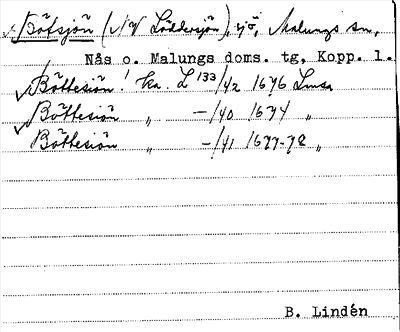 Bötsjön (NV Löddersjön), sjö, Malungs sn,
Nås o. Malungs doms. tg, Kopp. l.
Böttesiön! ka. L 133/42 1676 Lmsa
Böttesiön " —/40 1674 "
Böttesiön " —/41 1677-78 "
B. Lindén